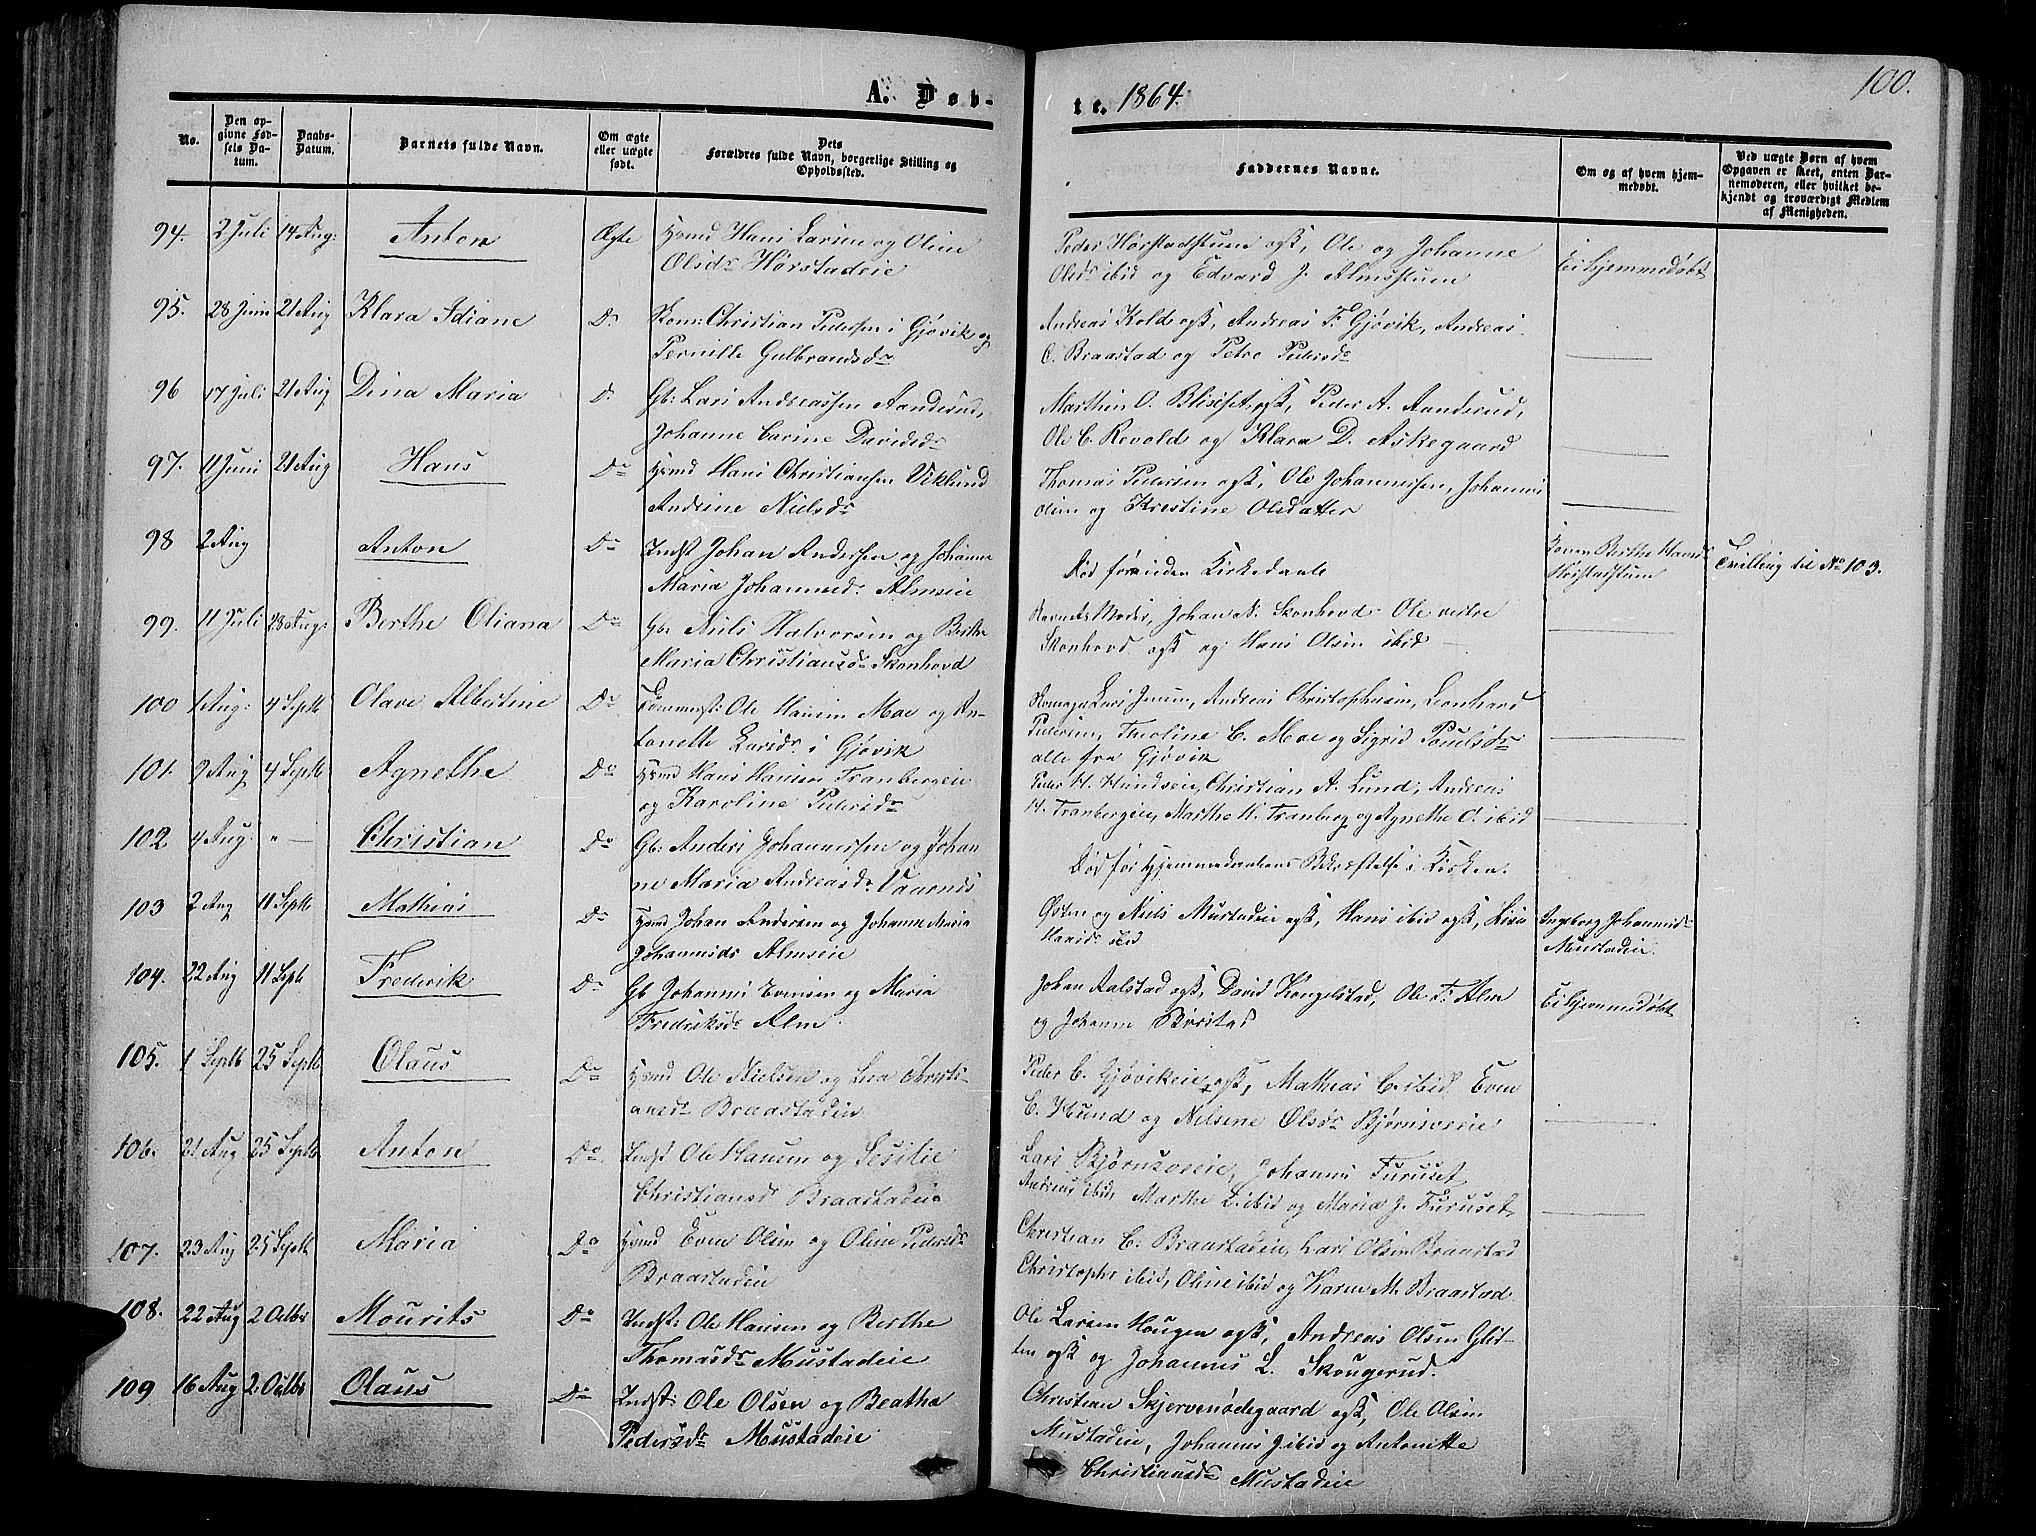 A. Døb-
te. 1864.
100.
No.
Den op-
givne Fød-
sels Da-
tum.
Daabs-
Datum.
Barnets fulde Navn.
Om ægte
eller uægte
født.
Dets
Forældres fulde Navn, borgerlige Stilling og
Opholdssted.
Faddernes Navne.
Om og af hvem hjem-
medøbt.
Ved uægte Børn af hvem
Opgaven er skeet, enten Bar-
nemoderen, eller hvilket be-
kjendt og troværdigt Medlem
af Menigheden.
94. 2 Juli 14 Aug: Anton Ægte Hsmd Hans Larsen og Oline
Olsdr Hørstadeie
Peder Hørstadstuen ogsk, Ole og Johanne
Olsdr ibid og Edvard J. Almsstuen
Ei hjemmedøbt
95. 28 Juni 21 Aug Klara Idiane Do Skom: Christian Pedersen i Gjøvik og
Pernille Gulbrandsdr
Andreas Kolde ogsk, Andreas F. Gjøvik, Andreas
C. Braastad og Petre Pedersdr
96 17 Juli 21 Aug Dina Maria Do Gb: Lars Andreassen Aanderud,
Johanne Carine Davidsdr
Marthin O. Blisset ogsk, Peder A. Aanderud,
Ole C. Revold og Klara D. Askegaard
97. 11 Juni 21 Aug Hans Do Hsmd Hans Christiansen Viklund
Andrine Nielsdr
Thomas Pedersen ogsk, Ole Johannessen, Johannes
Olsen og Kristine Olsdatter
98 2 Aug Anton Do Indst Johan Andersen og Johanne
Maria Johannesdr Almseie
Død førinden Kirkedaab
Konen Berthe Hansdr
Hørstadstuen
Tvilling til No 103.
99. 11 Juli 28 Aug: Berthe Oliana Do Gb: Niels Halvorsen og Berthe
Maria Christiansdr Skonhovd
Barnets Moder, Johan N. Skonhovd Ole vestre
Skonhovd ogsk og Hans Olsen ibid
100 1 Aug: 4 Septb Olave Albertine Do Tømmerst: Ole Hansen Moe og An-
tonette Larsdr i Gjøvik
Lars Jensen, Andreas Christophersen, Leonhard
Pedersen, Thioline C. Moe og Sigrid Poulsdr
alle fra Gjøvik
101. 9 Aug 4 Septb Agnethe Do Hsmd Hans Hansen Tranbergeie
og Karoline Pedersdr
Peder H. Hundseie, Christian A. Lund, Andreas
H. Tranbergeie, Marthe H. Tranberg og Agnethe O. ibid
102. 4 Aug: " — Christian Do Gb: Anders Johannessen og Johan
ne Maria Andreasdr Vaarnes
Død før Hjemmedaabens Bekræftelse i Kirken.
103 2 Aug 11 Septb Mathias Do Hsmd Johan Andersen og Johanne Maria
Johannesdr Almseie
Østen og Niels Mustadeie ogsk, Hans ibid ogsk, Lisa
Hansdr ibid
Ingeborg Johannesdr
Mustadeie.
104. 22 Aug 11 Septb Frederik Do Gb Johannes Evensen og Maria
Fredriksdr Alm.
Johan Aalstad ogsk, David Kongelstad, Ole F. Alm
og Johanne Biristad
Ei hjemmedøbt
105. 1 Septb 25 Septb Olaus Do Hsmd Ole Nielsen og Lisa Christi-
ansdr Braastadeie
Peder C. Gjøvikeie ogsk, Mathias C. ibid Even
C. Hund og Nilsine Olsdr Bjørnsveeie
106. 21 Aug 25 Septb Anton Do Indst Ole Hansen og Sesilie
Christiansdr Braastadeie
Lars Bjørnsveeie, Johannes Furuset
Andreas ibid, Marthe L. ibid og Maria J. Furuset,
107. 23 Aug 25 Septb Maria Do Hsmd Even Olsen og Oline Pedersdr
Braastadeie
Christian C. Braastadeie, Lars Olsen Braastad
Christopher ibid, Oline ibid og Karen M. Braastad
108. 22 Aug 2 Octbr Mourits Do Indst: Ole Hansen og Berthe
Thomasdr Mustadeie
Ole Larsen Hougen ogsk, Andreas Olsen Glit-
ten ogsk og Johannes L. Skougerud.
109 16 Aug 2 Octbr Olaus Do Indst: Ole Olsen og Beathe
Pedersdr Mustadeie
Christian Skjervenødegaard ogsk, Ole Olsen
Mustadeie, Johannes J. ibid og Antonette
Christiansdr Mustadeie